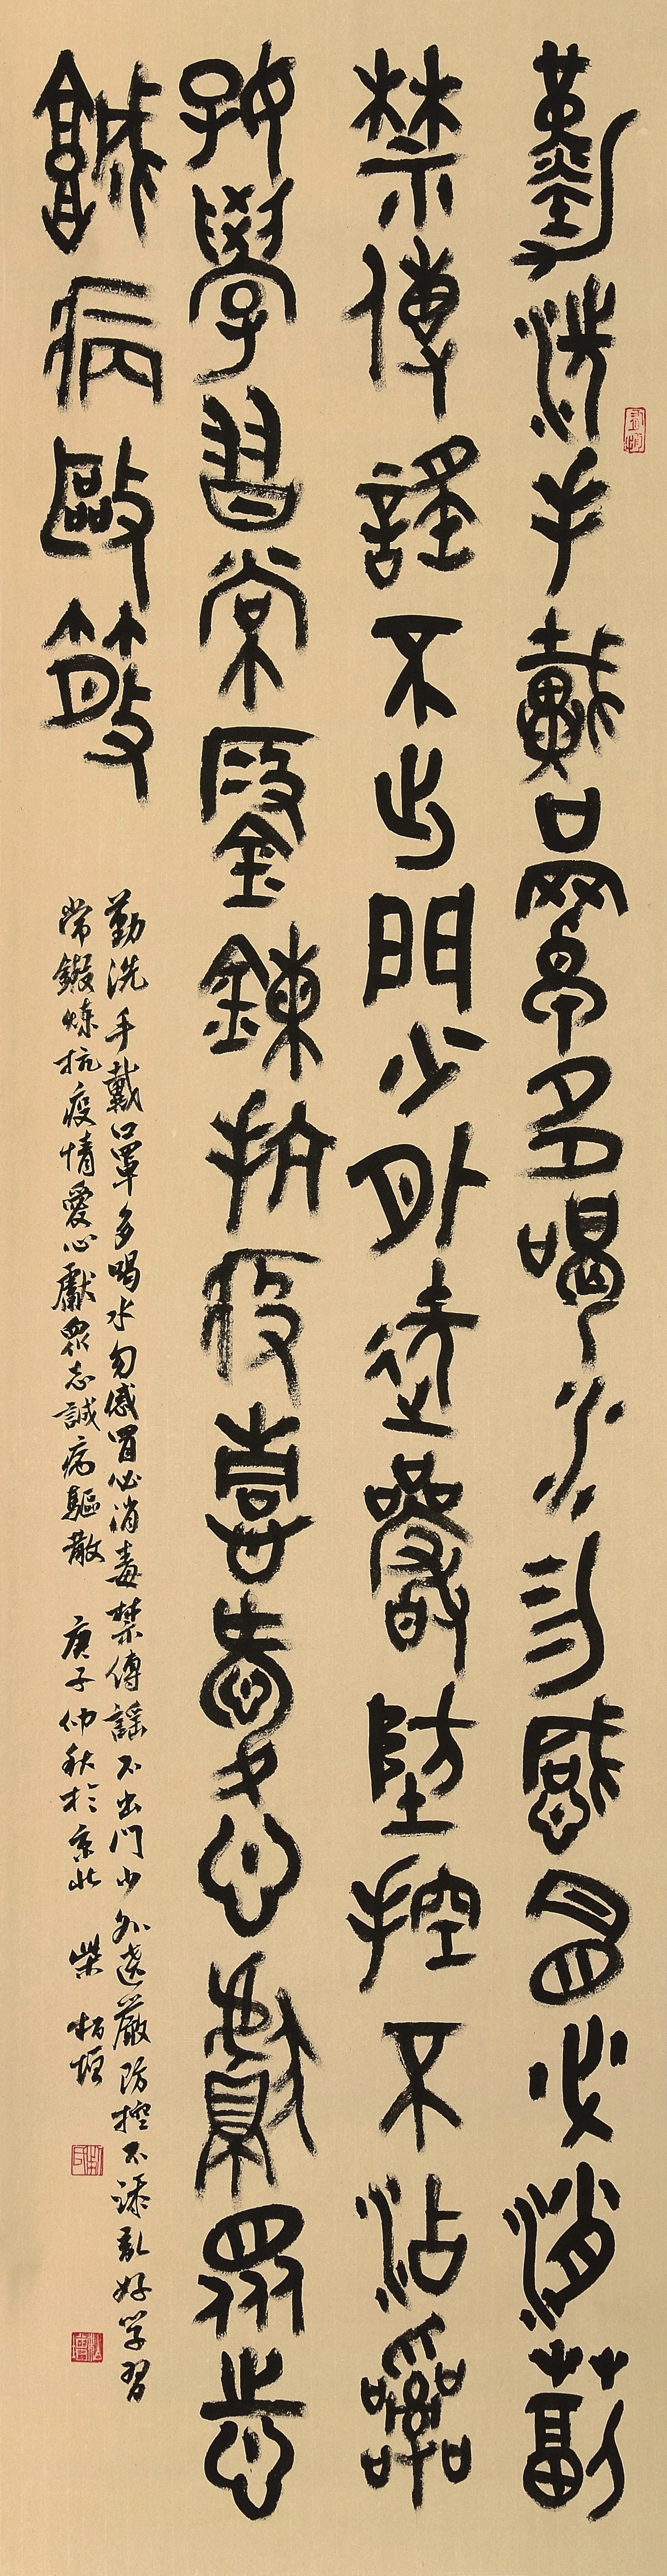 勤洗手戴口罩多喝水勿感冒必消毒
禁傳謠不出門少外遶嚴防控不沾亂
好學習常鍛鍊抗疫喜愛心獻眾志
誠病驅散
勤洗手戴口罩多喝水勿感冒必消毒禁傳謠不出門少外遶嚴防控不添亂好学習
常鍛煉抗疫情愛心獻眾志誠病驅散 庚子仲秋於京北 柴